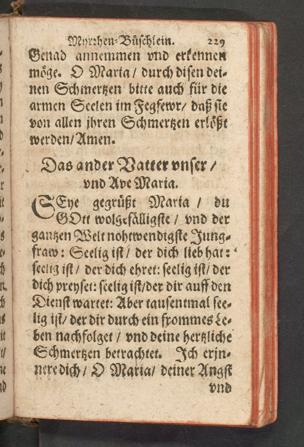 Myrrhen-Büschlein. 229
Genad annemmen vnd erkennen
möge. O Maria / durch disen dei-
nen Schmertzen bitte auch für die
armen Seelen im Fegfewr / daß sie
von allen jhren Schmertzen erlößt
werden / Amen.
Das ander Vatter vnser /
vnd Ave Maria.
SEye gegrüßt Maria / du
GOtt wolgefälligste / vnd der
gantzen Welt nohtwendigste Jung-
fraw: Seelig ist / der dich lieb hat:
seelig ist / der dich ehret: seelig ist / der
dich preyset: seelig ist / der dir auff den
Dienst wartet: Aber tausentmal see-
lig ist / der dir durch ein frommes Le-
ben nachfolget / vnd deine hertzliche
Schmertzen betrachtet. Ich erjn-
nere dich / O Maria / deiner Angst
vnd